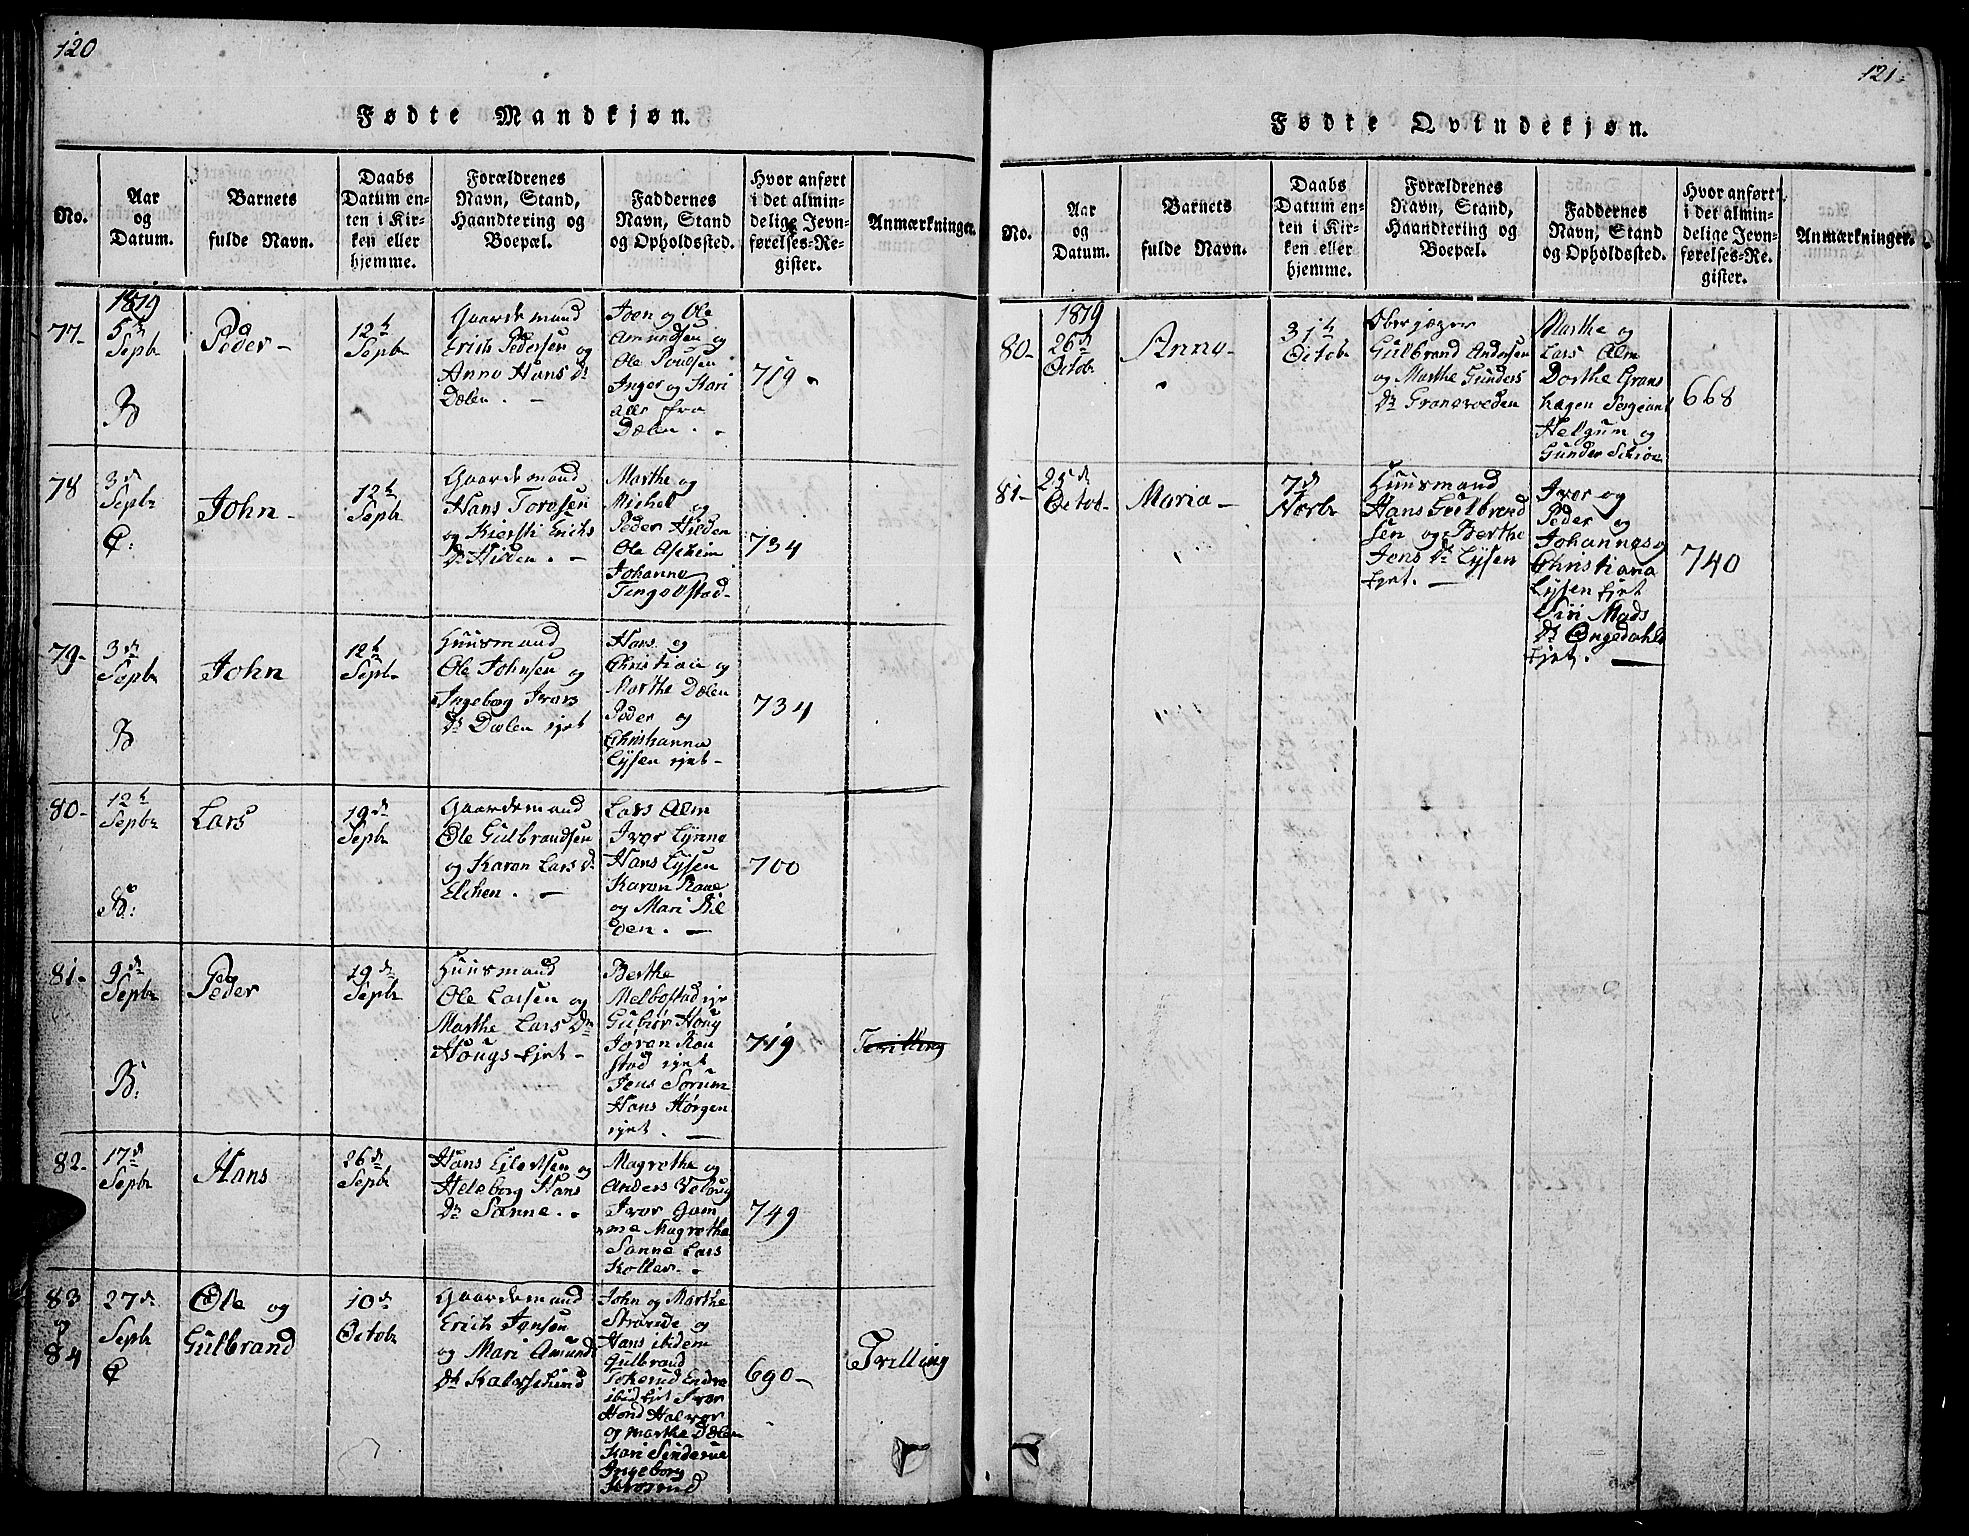 120
Fødte Mandkjøn.
No.
Aar
og
Datum.
Barnets
fulde Navn.
Daabs
Datum en-
ten i Kir-
ken eller
hjemme.
Forældrenes
Navn, Stand,
Haandtering og
Boepæl.
Faddernes
Navn, Stand
og Opholdssted.
Hvor anført
i det almin-
delige Jevn-
førelses-Re-
gister.
Anmærkninger.
77-
1819
5te
Septr
B
Peder-
12te
Septr
Gaardemand
Erich Pedersen og
Anne Hans Dr
Dælen. -
Iven og Ole
Amundsen og
Ole Poulsen
Inger og Kari
alle fra
Dælen.
719
78
3de
Septr
C:
John-
12te
Septr
Gaardemand
Hans Torersen
og Kiersti Erichs
Dr Hilden. -
Marthe og
Michel og
Peder Hilden
Ole Aschim
Johanne
Tingelstad-
734
79-
3de
Septr
B
John
12te
Septr
Huusmand
Ole Johnsen og
Ingebog Ivars
Dr Dælen ejet
Hans og
Christian og
Marthe Dælen
Peder og
Christianna
Lysen ejet-
734
80-
12te
Septr
B:
Lars
19de
Septr
Gaardemand
Ole Gulbrandsen
og Karen Lars Dr
Elchen. -
Lars Alm
Iver Lynne
Hans Lysen
Karen Raae
og Mari Hil
den. -
700
81-
9de
Septr
B:
Peder
19de
Septr
Huusmand
Ole Larsen og
Marthe Lars Dr
Hougs Ejet-
Berthe
Melbostad eje
Gubiør Houg
Joran Rau
stad ejet
Jens Sorum
Hans Hørgen
ejet. -
719
Tvilling
82-
17de
Septr
Hans
26de
Septr
Hans Ejlertsen og
Heleborg Hans
Dr Sanne.
Magrethe og
Anders Velaug
Iver Gam
me Magrethe
Sanne Lars
Kolkar-
749
83
og
84
27de
Septr
C
Ole og
Gulbrand
10de
Octobr
Gaardemand
Erich Jensen
og Mari Amunds
Dr Kalvschind
John og Marthe
Strande og
Hans ibidem
Gulbrand
Tokerud Endre
ibid Ejet Iver
Hond Halvor
og Marthe Dælen
Kari Sinderue
Ingeborg
690-
Tvilling
121
Fødte Qvindekjøn.
No.
Aar
og
Datum.
Barnets
fulde Navn.
Daabs
Datum en-
ten i Kir-
ken eller
hjemme.
Forældrenes
Navn, Stand,
Haandtering og
Boepæl.
Faddernes
Navn, Stand
og Opholdssted.
Hvor anført
i det almin-
delige Jevn-
førelses-Re-
gister.
Anmærkninger.
80-
1819
26de
Octobr
Anne-
31te
Octobr
Oberjæger
Gulbrand Andersen
og Marthe Gunders
Dr Granevolden
Marthe og
Lars Alm
Dorthe Grans
hagen Sergeant
Helgum og
Gunder Schiøe
668
81-
25de
Octobr
Maria-
7de
Novbr
Huusmand
Hans Gulbrand
sen og Berthe
Jens Dr Lysen
Ejet. -
Iver og
Peder og
Johannes og
Christiana
Lysen Ejet
Siri Mads
Dr Ongedahls
Ejet. -
740